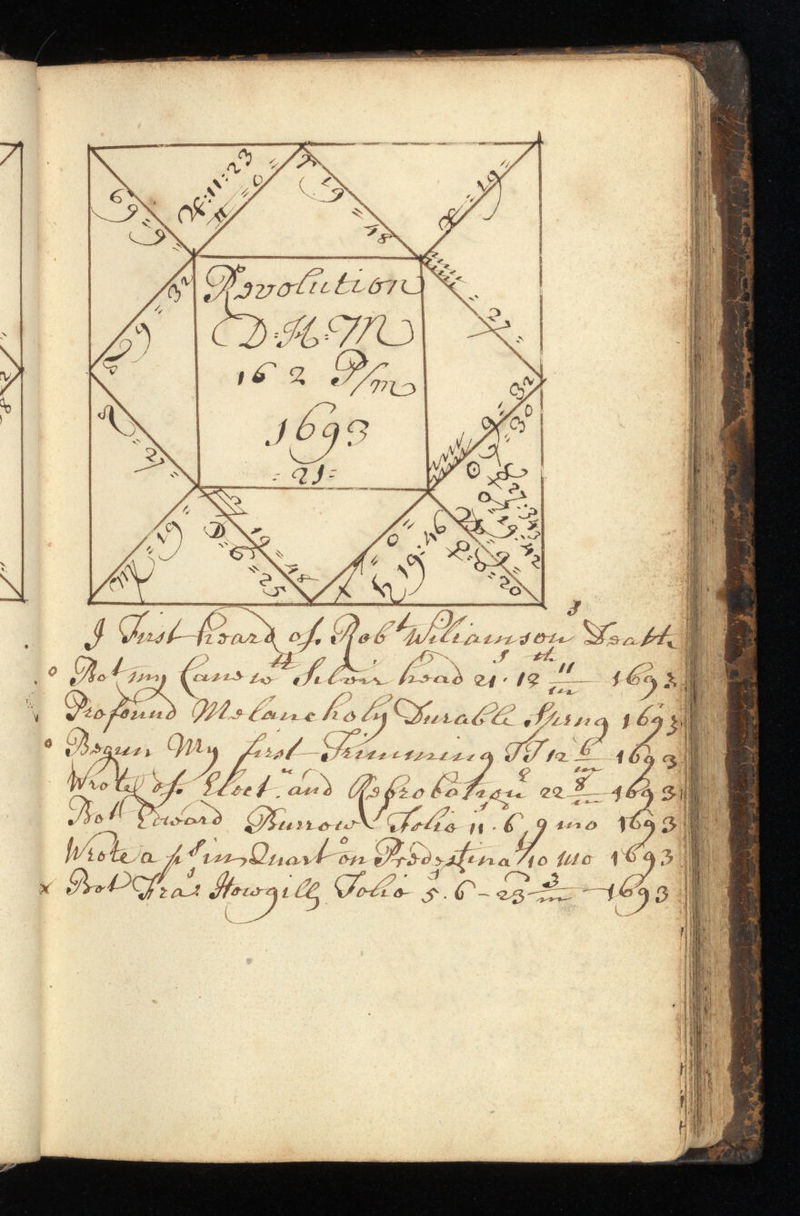 ♃:11:23
♊=0=
♈ 19=48
♓=19=
69=9=
♒=27=
♉ 9=32
Revolution
D:H:M
16 2 P/m
1693
:21:
♒ 9=32
☉ ☿=30
♌=27=
♍=19=
♎ 19=48
☽=6=25
♐=0=
♄ 19:46
♑=9=
♂=20
I First heard of Robt Wiliamsons Death
Bot my Cane wth Silvir head 21s 12th 11/m 1693
Profound Melancholy Durable Sprng 1693
Begun My first Trimming TT 12 6/m 1693
Wrote of Elect:n and Reprobation 22 8/m 1693
Bot Edward Burrow Folio 11s.6d, 9 mo 1693
Wrote a ps in Quarto on Prodestina 10 mo 1693
x Bot Fras Howgill Folio 5s.6 - 23 3/m 1693